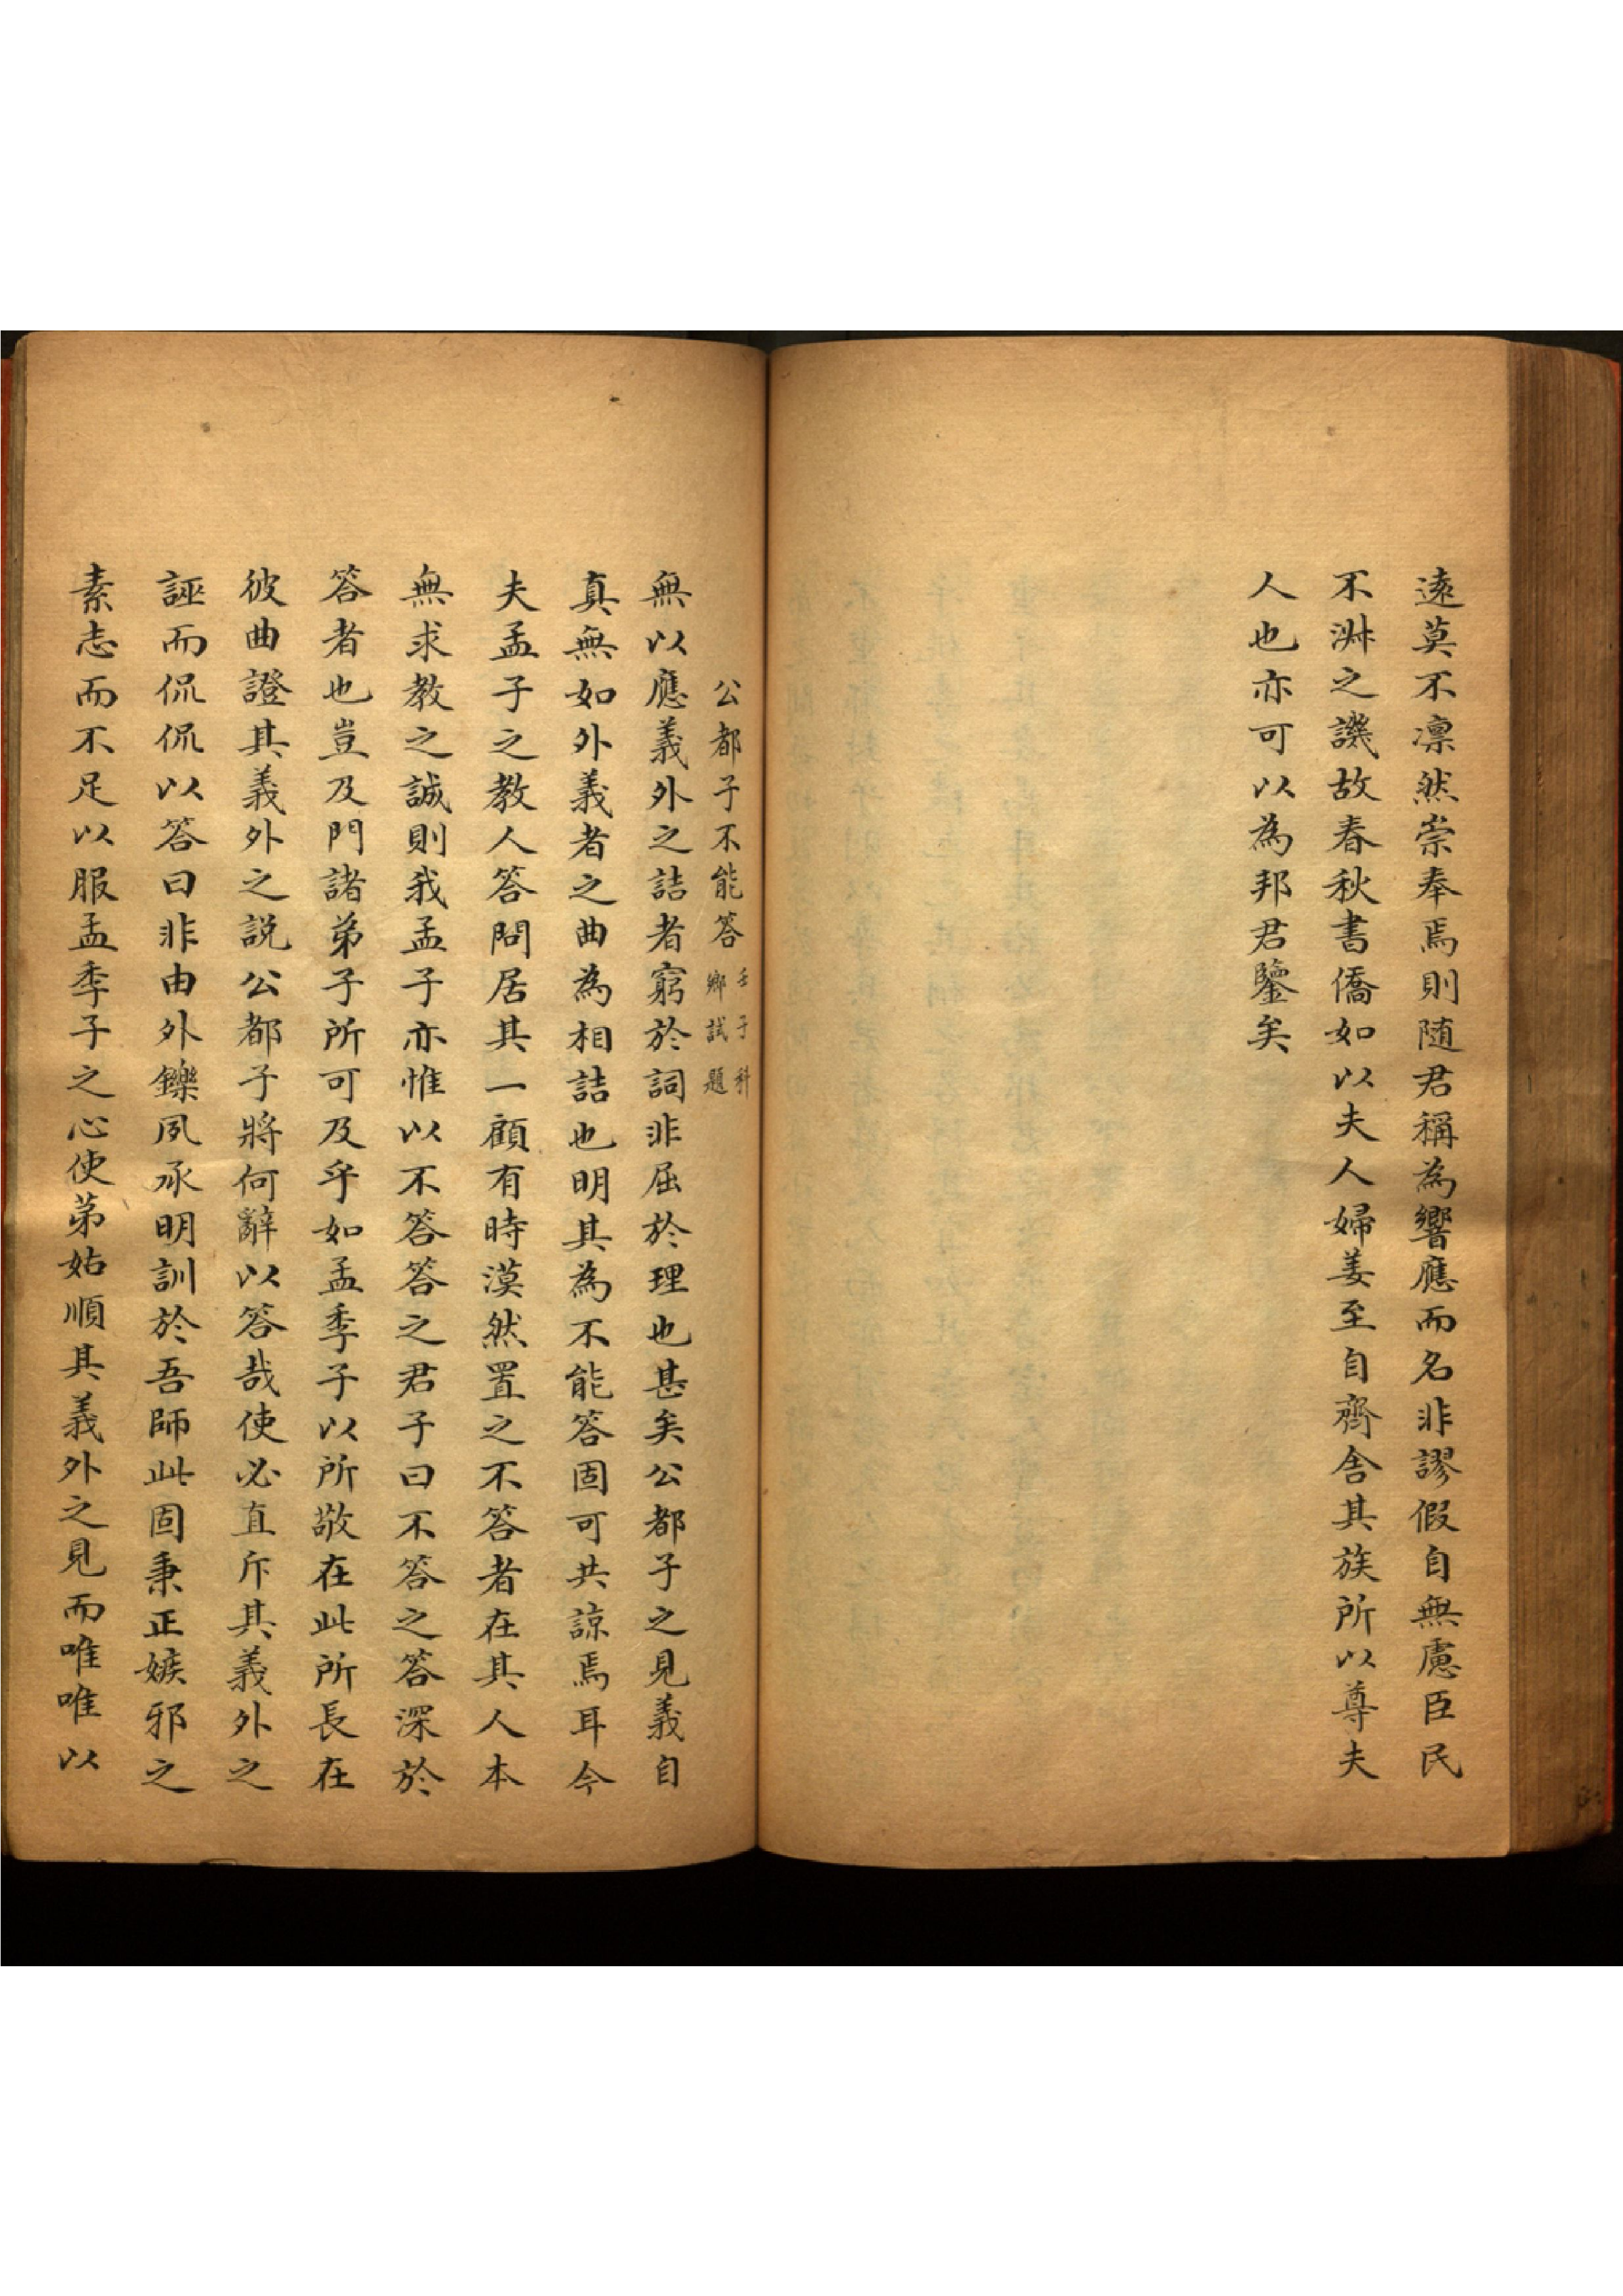 遠莫不凛然崇奉焉則随君稱為響應而名非謬假自無慮臣民
不淋之譏故春秋書僑如以夫人婦姜至自齊舎其族所以尊夫
人也亦可以為邦君鑒矣
公都子不能答壬子科鄉試題
無以應義外之詰者窮於詞非屈於理也甚矣公都子之見義自
真無如外義者之曲為相詰也明其為不能答固可共諒焉耳今
夫孟子之教人答問居其一顧有時漠然置之不答者在其人本
無求教之誠則我孟子亦惟以不答答之君子曰不答之答深於
答者也豈及門諸弟子所可及乎如孟季子以所敬在此所長在
彼曲證其義外之説公都子將何辭以答哉使必直斥其義外之
誣而侃侃以答曰非由外鑠夙承明訓於吾師此固秉正嫉邪之
素志而不足以服孟季子之心使第姑順其義外之見而唯唯以